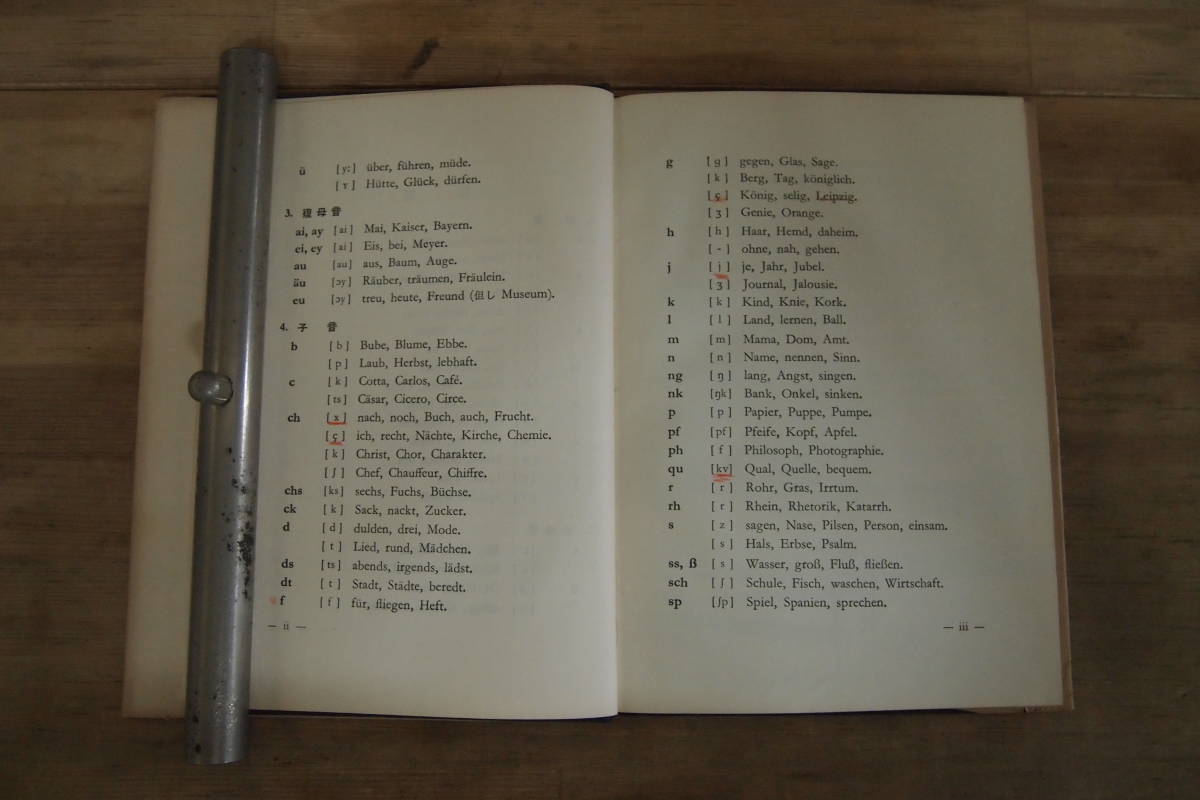 ü [y:] über, führen, müde.
[ʏ] Hütte, Glück, dürfen.
3. 複母音
ai, ay [ai] Mai, Kaiser, Bayern.
ei, ey [ai] Eis, bei, Meyer.
au [au] aus, Baum, Auge.
äu [ɔy] Räuber, träumen, Fräulein.
eu [ɔy] treu, heute, Freund (但し Museum).
4. 子音
b [b] Bube, Blume, Ebbe.
[p] Laub, Herbst, lebhaft.
c [k] Cotta, Carlos, Café.
[ts] Cäsar, Cicero, Circe.
ch [x] nach, noch, Buch, auch, Frucht.
[ç] ich, recht, Nächte, Kirche, Chemie.
[k] Christ, Chor, Charakter.
[ʃ] Chef, Chauffeur, Chiffre.
chs [ks] sechs, Fuchs, Büchse.
ck [k] Sack, nackt, Zucker.
d [d] dulden, drei, Mode.
[t] Lied, rund, Mädchen.
ds [ts] abends, irgends, lädst.
dt [t] Stadt, Städte, beredt.
f [f] für, fliegen, Heft.
— ii —
g [g] gegen, Glas, Sage.
[k] Berg, Tag, königlich.
[ç] König, selig, Leipzig.
[ʒ] Genie, Orange.
h [h] Haar, Hemd, daheim.
[-] ohne, nah, gehen.
j [j] je, Jahr, Jubel.
[ʒ] Journal, Jalousie.
k [k] Kind, Knie, Kork.
l [l] Land, lernen, Ball.
m [m] Mama, Dom, Amt.
n [n] Name, nennen, Sinn.
ng [ŋ] lang, Angst, singen.
nk [ŋk] Bank, Onkel, sinken.
p [p] Papier, Puppe, Pumpe.
pf [pf] Pfeife, Kopf, Apfel.
ph [f] Philosoph, Photographie.
qu [kv] Qual, Quelle, bequem.
r [r] Rohr, Gras, Irrtum.
rh [r] Rhein, Rhetorik, Katarrh.
s [z] sagen, Nase, Pilsen, Person, einsam.
[s] Hals, Erbse, Psalm.
ss, ß [s] Wasser, groß, Fluß, fließen.
sch [ʃ] Schule, Fisch, waschen, Wirtschaft.
sp [ʃp] Spiel, Spanien, sprechen.
— iii —